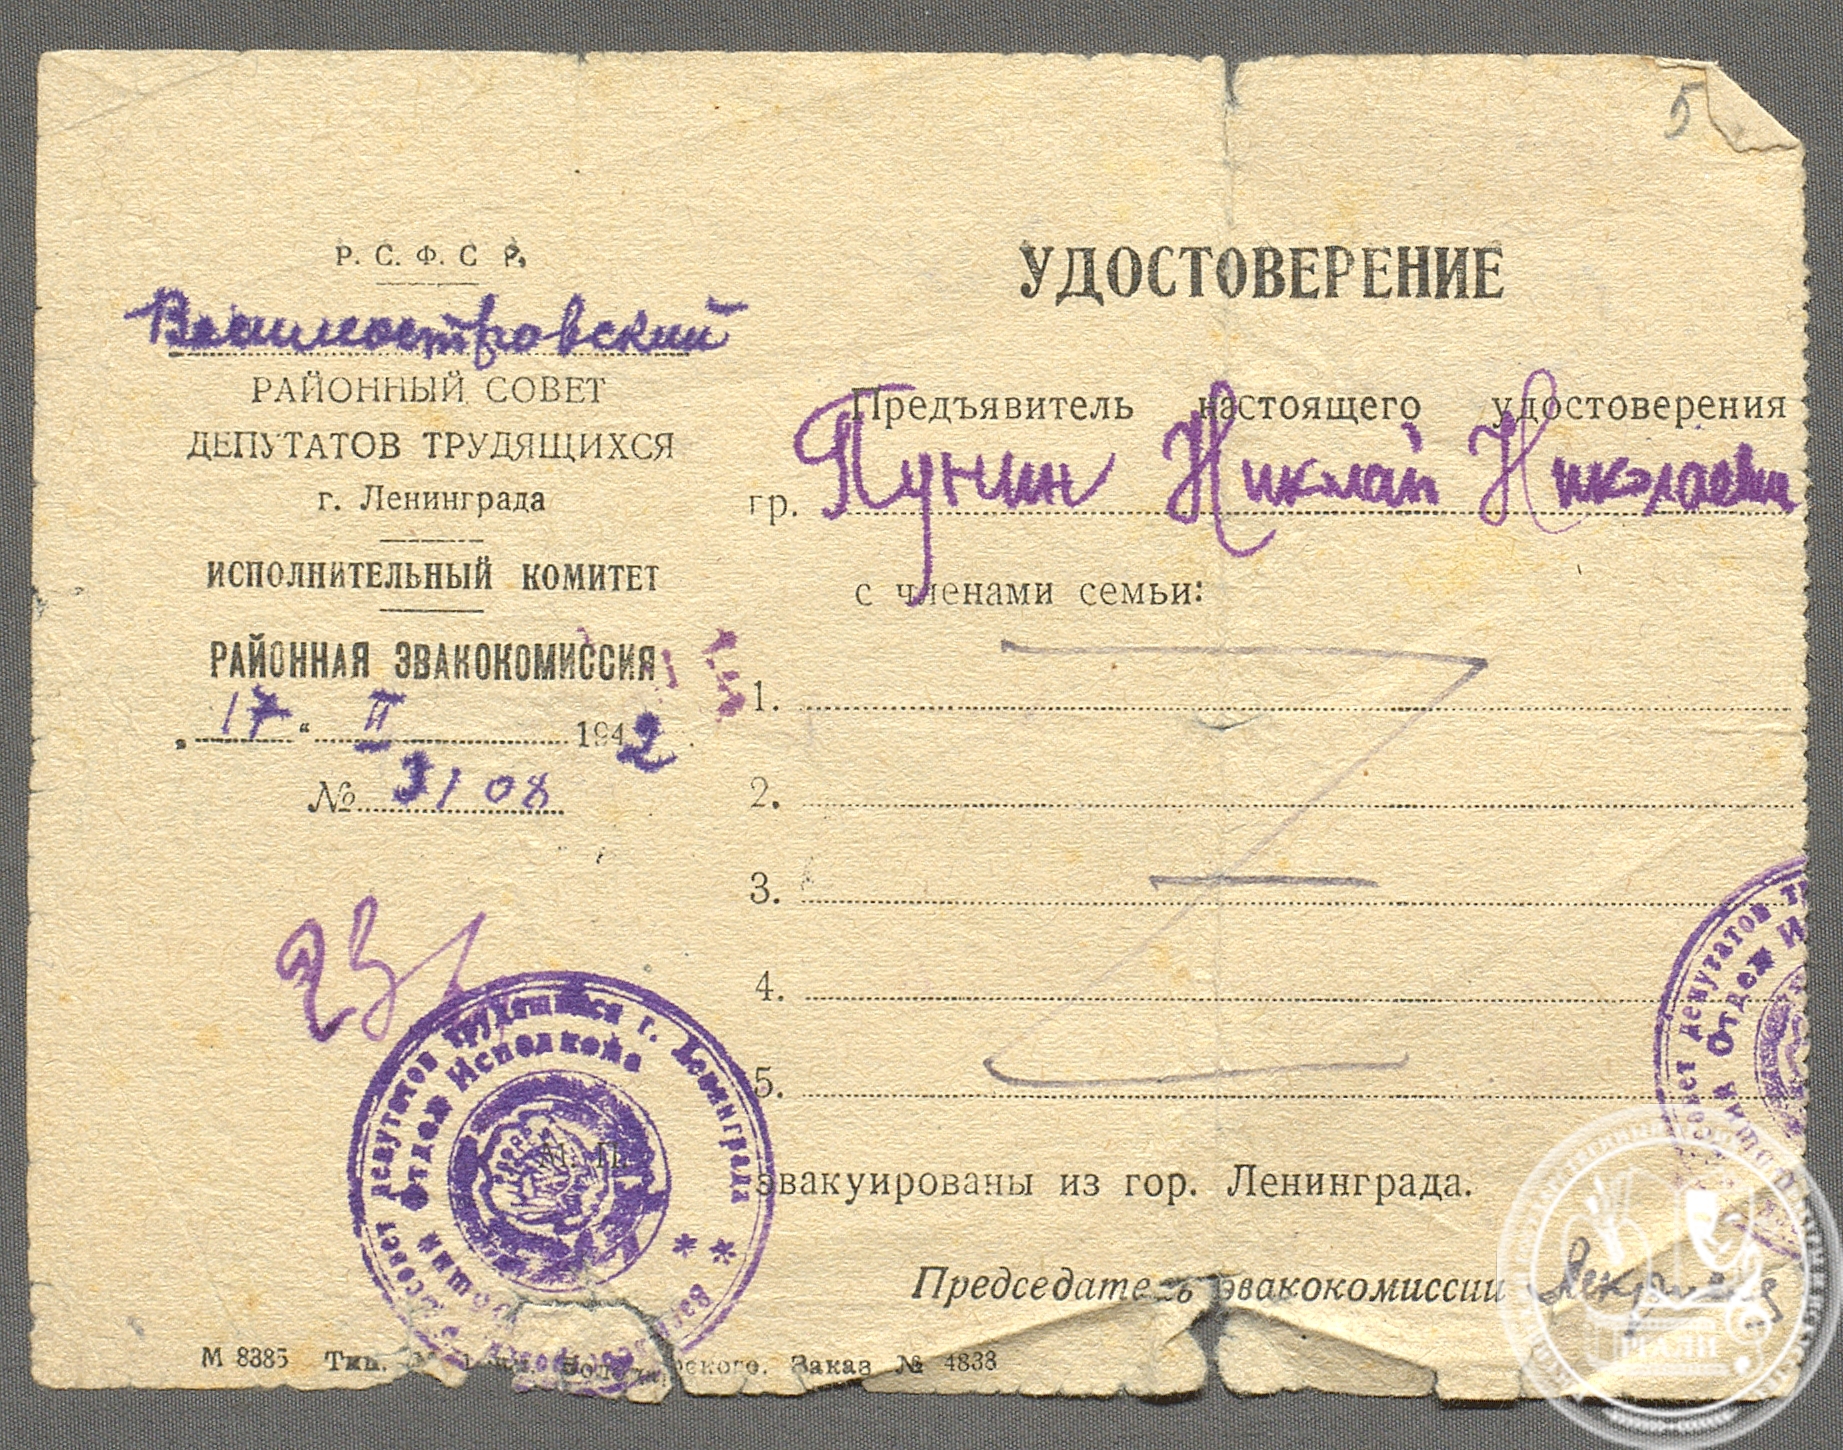 5
Р. С. Ф. С Р.
Василеостровский
РАЙОННЫЙ СОВЕТ
ДЕПУТАТОВ ТРУДЯЩИХСЯ
г. Ленинграда
ИСПОЛНИТЕЛЬНЫЙ КОМИТЕТ
РАЙОННАЯ ЭВАКОКОМИССИЯ
„17“ II 1942
№ 3108
М. П.
депутатов трудящихся г. Ленинграда
Общий Отдел Исполкома
М 8385 Тип. Володарского. Заказ № 4838
УДОСТОВЕРЕНИЕ
Предъявитель настоящего удостоверения
гр. Пунин Николай Николаевич
с членами семьи:
1.
2.
3.
4.
5.
эвакуированы из гор. Ленинграда.
Председатель эвакокомиссии
депутатов
Общий Отдел
РГАЛИ